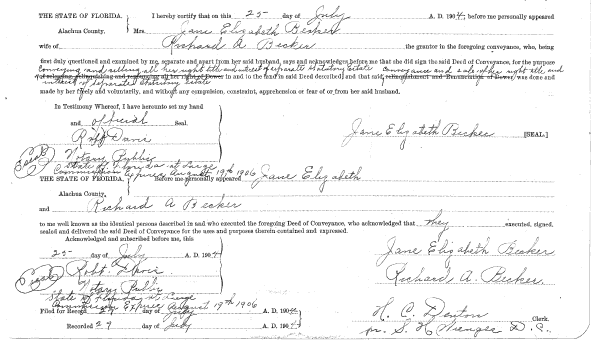 THE STATE OF FLORIDA. I hereby certify that on this 25 day of July A. D. 1904, before me personally appeared
Alachua County, Mrs. Jane Elizabeth Becker
wife of Richard A Becker the grantor in the foregoing conveyance, who, being
first duly questioned and examined by me, separate and apart from her said husband, says and acknowledges before me that she did sign the said Deed of Conveyance, for the purpose
conveying and selling all her right title and interest of separate statutory estate conveyance and sale of her right title and
of relinquishing and renouncing all her right of dower in and to the land in said Deed described; and that said relinquishment and Renunciation of Dower was done and
interest of separate statutory estate
made by her freely and voluntarily, and without any compulsion, constraint, apprehension or fear of or from her said husband.
In Testimony Whereof, I have hereunto set my hand
and official Seal.
Robt Davis Jane Elizabeth Becker [SEAL]
Seal Notary Public
State of Florida at Large
Commission Expires August 19th 1906
THE STATE OF FLORIDA. Before me personally appeared Jane Elizabeth
Alachua County,
and Richard A Becker
to me well known as the identical persons described in and who executed the foregoing Deed of Conveyance, who acknowledged that they executed, signed,
sealed and delivered the said Deed of Conveyance for the uses and purposes therein contained and expressed.
Acknowledged and subscribed before me, this
25 day of July A. D. 1904 Jane Elizabeth Becker
Seal Robt. Davis Richard A. Becker.
Notary Public
State of Florida at Large
Commission Expires August 19th 1906
Filed for Record 27 day of July A. D. 1904 H. C. Denton Clerk.
Recorded 29 day of July A. D. 1904 pr. S. H. D. C.